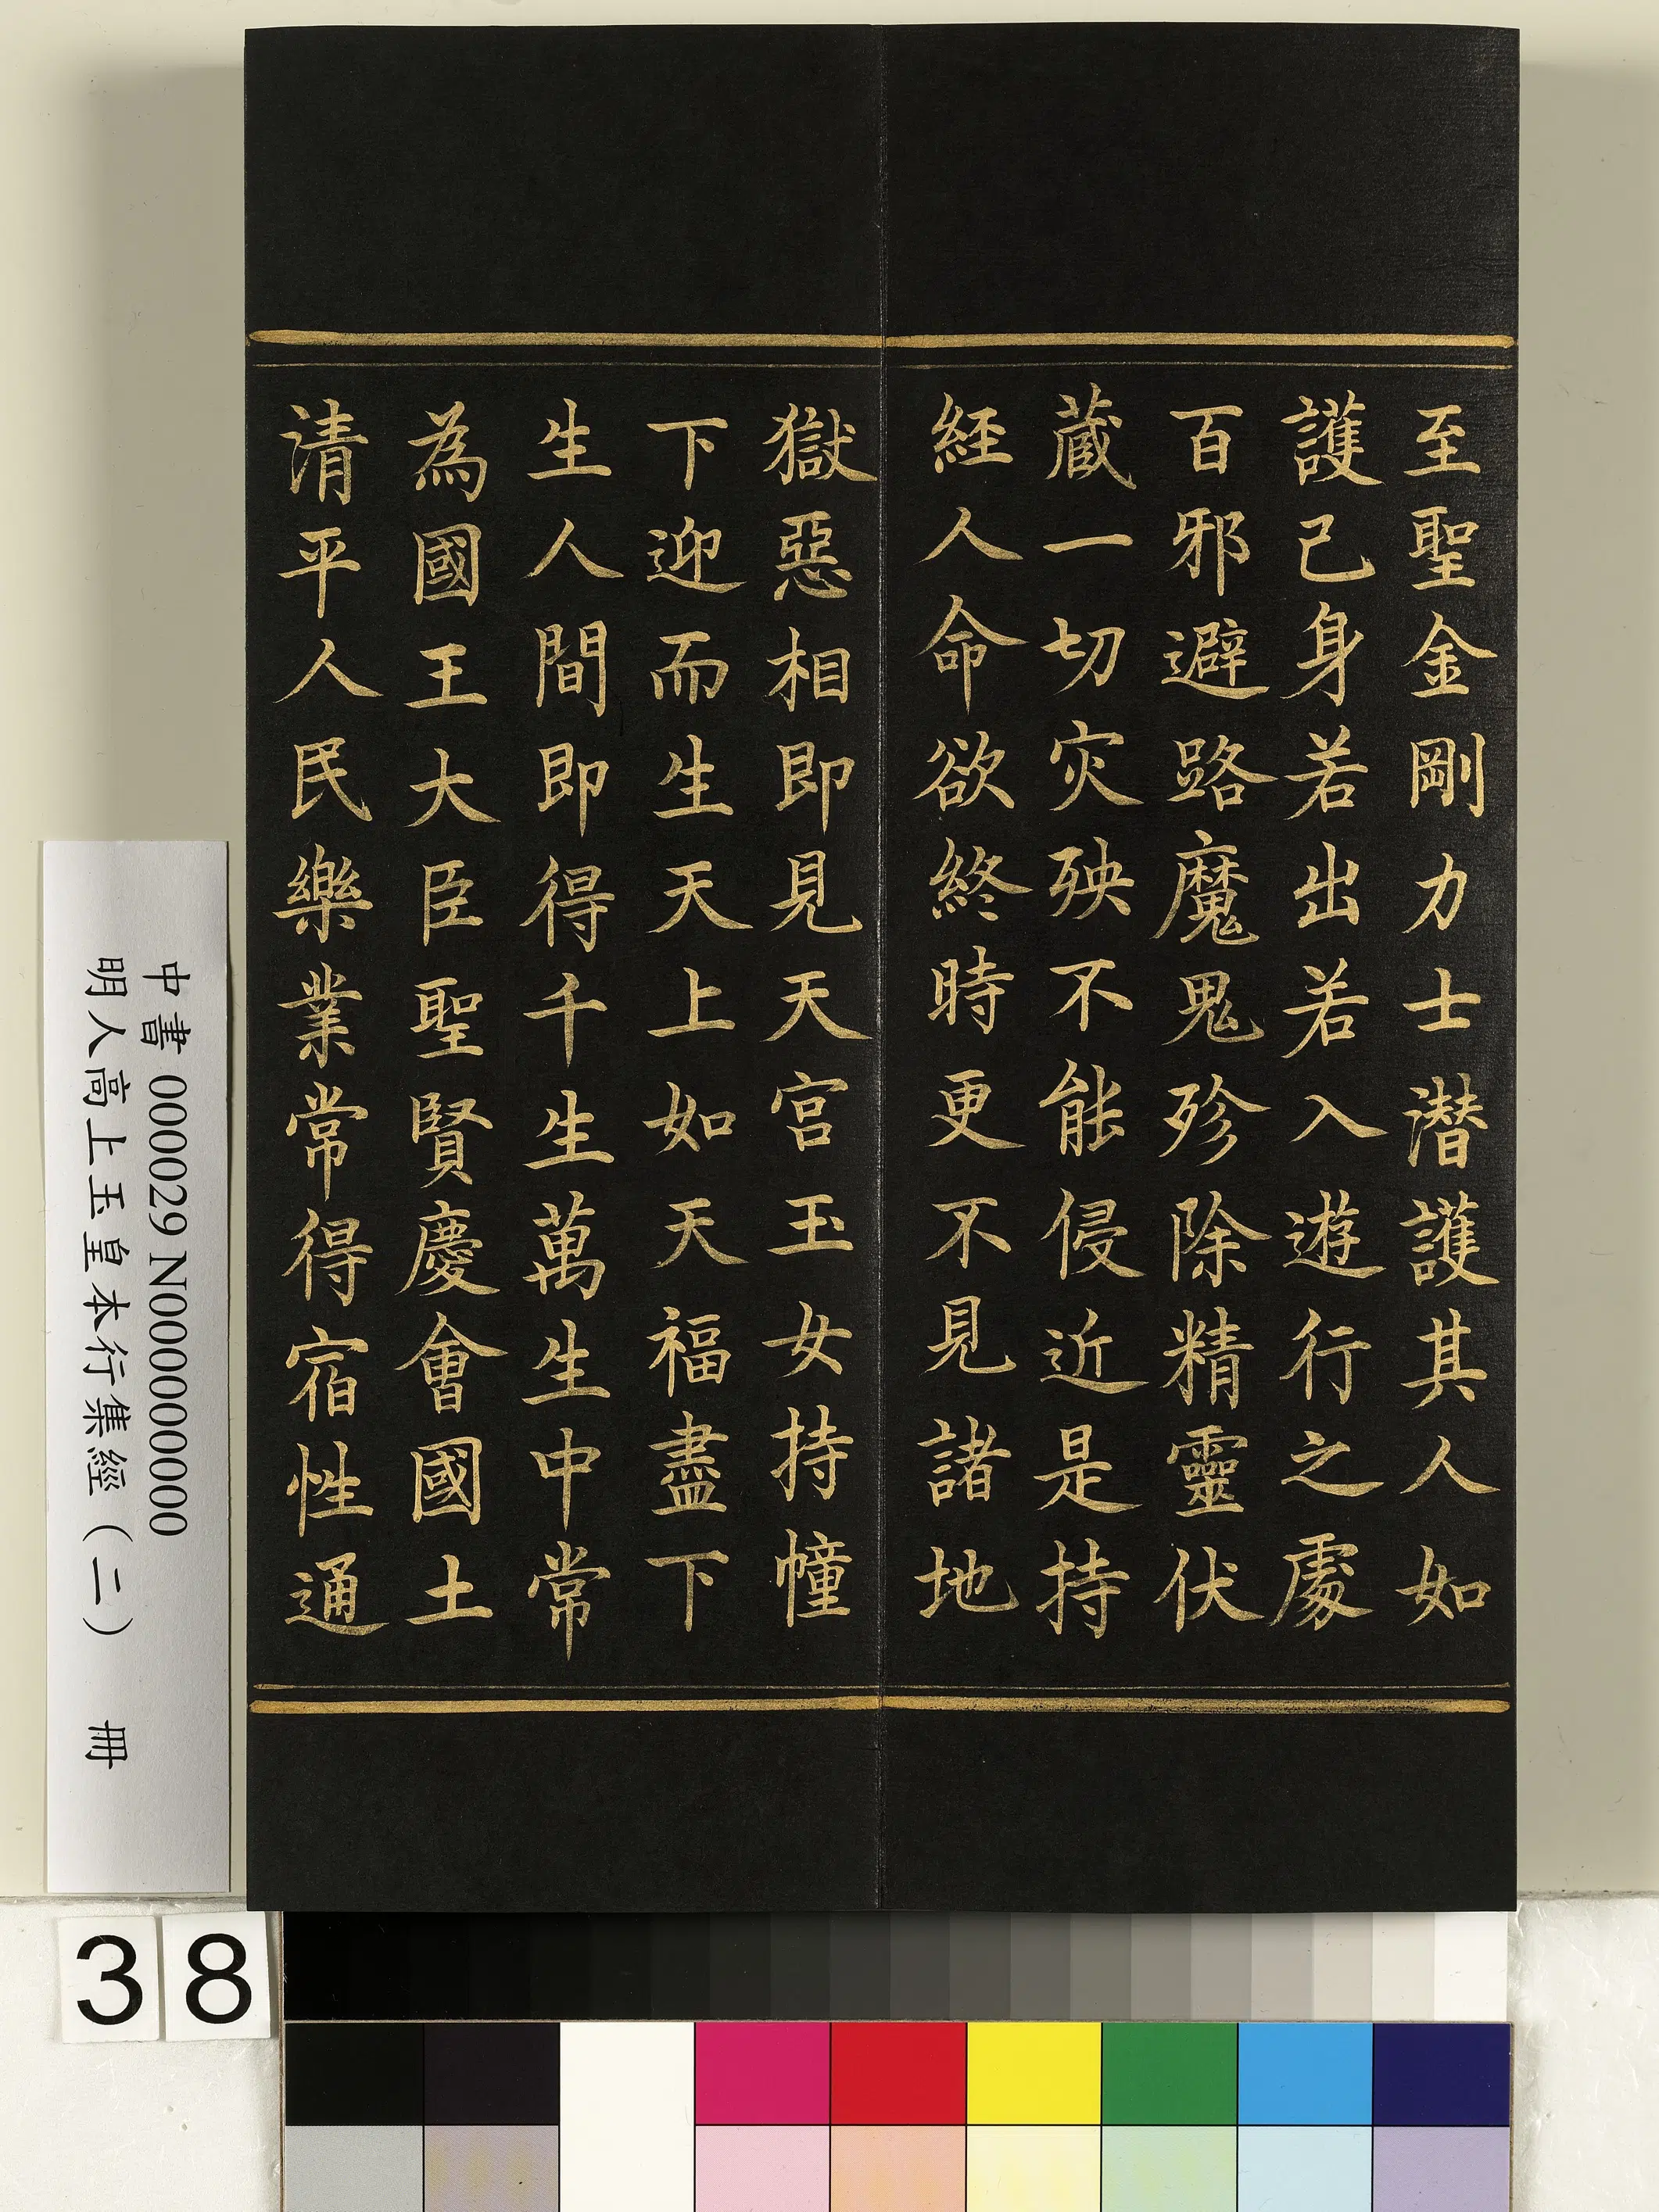 至聖金剛力士潛護其人如
護己身若出若入遊行之處
百邪避路魔鬼殄除精靈伏
蔵一切灾殃不能侵近是持
經人命欲終時更不見諸地
獄惡相即見天宮玉女持幢
下迎而生天上如天福盡下
生人間即得千生萬生中常
為國王大臣聖賢慶會國土
清平人民樂業常得宿性通
中書 000029 N000000000
明人高上玉皇本行集經（二） 冊
38